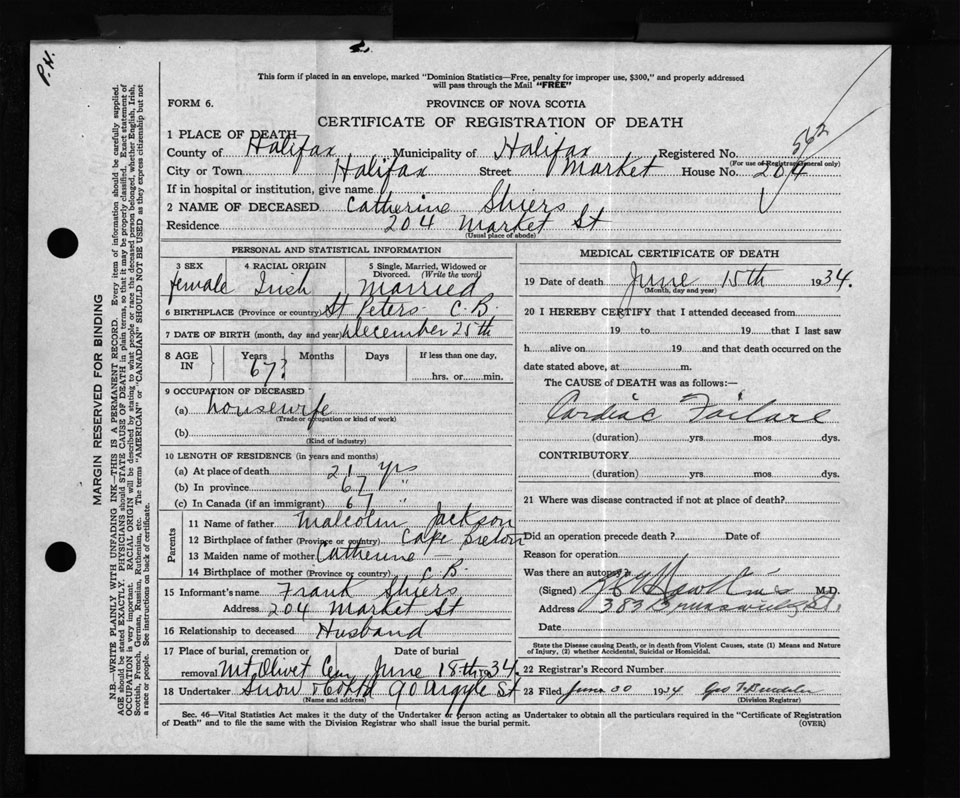 P.H.
This form if placed in an envelope, marked "Dominion Statistics—Free, penalty for improper use, $300," and properly addressed
will pass through the Mail "FREE"
FORM 6.
PROVINCE OF NOVA SCOTIA
CERTIFICATE OF REGISTRATION OF DEATH
1 PLACE OF DEATH
County of Halifax Municipality of Halifax Registered No. 562
(For use of Registrar General only)
City or Town Halifax Street Market House No. 204
If in hospital or institution, give name
2 NAME OF DECEASED Catherine Shiers
Residence 204 Market St
(Usual place of abode)
PERSONAL AND STATISTICAL INFORMATION
3 SEX 4 RACIAL ORIGIN 5 Single, Married, Widowed or
Divorced. (Write the word)
female Irish married
6 BIRTHPLACE (Province or country) St Peters C.B.
7 DATE OF BIRTH (month, day and year) December 25th
8 AGE IN Years Months Days If less than one day,
67? hrs. or min.
9 OCCUPATION OF DECEASED
(a) housewife
(Trade or occupation or kind of work)
(b)
(Kind of industry)
10 LENGTH OF RESIDENCE (in years and months)
(a) At place of death 21 yrs
(b) In province 67 "
(c) In Canada (if an immigrant) 67 "
Parents
11 Name of father Malcolm Jackson
12 Birthplace of father (Province or country) Cape Breton
13 Maiden name of mother Catherine —
14 Birthplace of mother (Province or country) C B.
15 Informant's name Frank Shiers
Address 204 Market St
16 Relationship to deceased Husband
17 Place of burial, cremation or Date of burial
removal Mt Olivet Cem June 18th 1934.
18 Undertaker Snow & Co Ltd 90 Argyle St
(Name and address)
MEDICAL CERTIFICATE OF DEATH
19 Date of death June 15th 1934.
(Month, day and year)
20 I HEREBY CERTIFY that I attended deceased from
19 to 19 that I last saw
h alive on 19 and that death occurred on the
date stated above, at m.
The CAUSE of DEATH was as follows:—
Cardiac Failure
(duration) yrs. mos. dys.
CONTRIBUTORY
(duration) yrs. mos. dys.
21 Where was disease contracted if not at place of death?
Did an operation precede death? Date of
Reason for operation
Was there an autopsy
(Signed) M.D.
Address 383 Brunswick St.
Date
State the Disease causing Death, or in death from Violent Causes, state (1) Means and Nature
of Injury, (2) whether Accidental, Suicidal or Homicidal.
22 Registrar's Record Number
23 Filed June 30 1934
(Division Registrar)
Sec. 46—Vital Statistics Act makes it the duty of the Undertaker or person acting as Undertaker to obtain all the particulars required in the "Certificate of Registration
of Death" and to file the same with the Division Registrar who shall issue the burial permit. (OVER)
MARGIN RESERVED FOR BINDING
N.B.—WRITE PLAINLY WITH UNFADING INK—THIS IS A PERMANENT RECORD. Every item of information should be carefully supplied.
AGE should be stated EXACTLY. PHYSICIANS should STATE CAUSE OF DEATH in plain terms, so that it may be properly classified. Exact statement of
OCCUPATION is very important. RACIAL ORIGIN will be described by stating to what people or race the deceased person belonged, whether English, Irish,
Scottish, French, German, Russian, Ruthenian, etc. The terms "AMERICAN" or "CANADIAN" SHOULD NOT BE USED as they express citizenship but not
a race or people. See instructions on back of certificate.